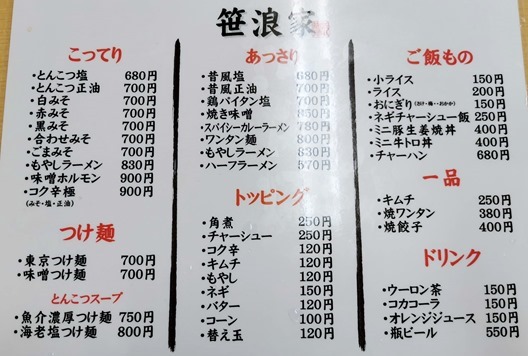 笹浪家
こってり
・とんこつ塩 680円
・とんこつ正油 700円
・白みそ 700円
・赤みそ 700円
・黒みそ 700円
・合わせみそ 700円
・ごまみそ 700円
・もやしラーメン 830円
・味噌ホルモン 900円
・コク辛極 900円
(みそ・塩・正油)
つけ麺
・東京つけ麺 700円
・味噌つけ麺 700円
とんこつスープ
・魚介濃厚つけ麺 750円
・海老塩つけ麺 800円
あっさり
・昔風塩 680円
・昔風正油 700円
・鶏パイタン塩 700円
・焼き味噌 850円
・スパイシーカレーラーメン 780円
・ワンタン麺 800円
・もやしラーメン 830円
・ハーフラーメン 570円
トッピング
・角煮 250円
・チャーシュー 250円
・コク辛 120円
・キムチ 120円
・もやし 120円
・ネギ 150円
・バター 120円
・コーン 100円
・替え玉 120円
ご飯もの
・小ライス 150円
・ライス 200円
・おにぎり(おけ・梅・おかか) 150円
・ネギチャーシュー飯 250円
・ミニ豚生姜焼丼 400円
・ミニ牛トロ丼 400円
・チャーハン 680円
一品
・キムチ 250円
・焼ワンタン 380円
・焼餃子 400円
ドリンク
・ウーロン茶 150円
・コカコーラ 150円
・オレンジジュース 150円
・瓶ビール 550円